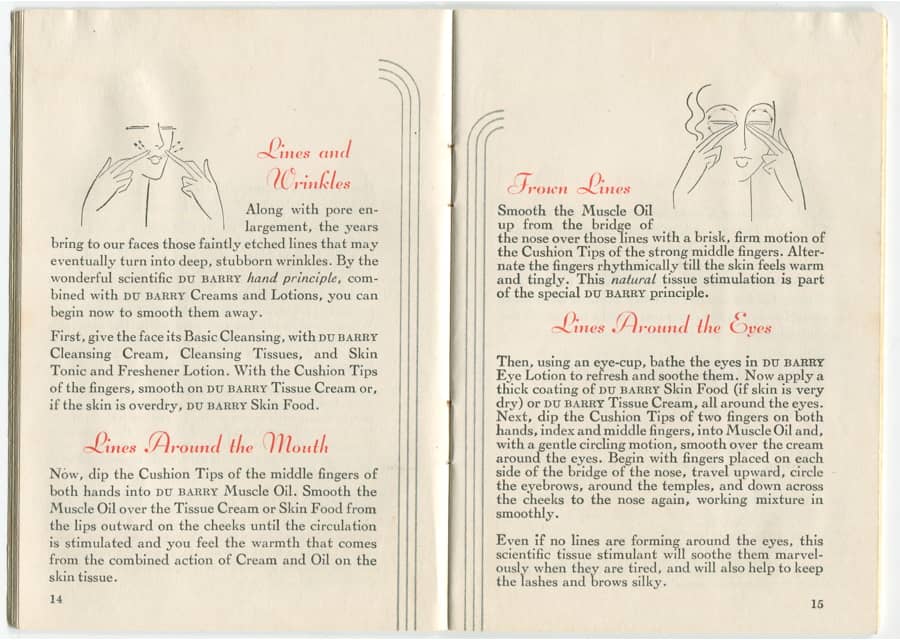 Lines and
Wrinkles
Along with pore en-
largement, the years
bring to our faces those faintly etched lines that may
eventually turn into deep, stubborn wrinkles. By the
wonderful scientific DU BARRY hand principle, com-
bined with DU BARRY Creams and Lotions, you can
begin now to smooth them away.
First, give the face its Basic Cleansing, with DU BARRY
Cleansing Cream, Cleansing Tissues, and Skin
Tonic and Freshener Lotion. With the Cushion Tips
of the fingers, smooth on DU BARRY Tissue Cream or,
if the skin is overdry, DU BARRY Skin Food.
Lines Around the Mouth
Now, dip the Cushion Tips of the middle fingers of
both hands into DU BARRY Muscle Oil. Smooth the
Muscle Oil over the Tissue Cream or Skin Food from
the lips outward on the cheeks until the circulation
is stimulated and you feel the warmth that comes
from the combined action of Cream and Oil on the
skin tissue.
14
Frown Lines
Smooth the Muscle Oil
up from the bridge of
the nose over those lines with a brisk, firm motion of
the Cushion Tips of the strong middle fingers. Alter-
nate the fingers rhythmically till the skin feels warm
and tingly. This natural tissue stimulation is part
of the special DU BARRY principle.
Lines Around the Eyes
Then, using an eye-cup, bathe the eyes in DU BARRY
Eye Lotion to refresh and soothe them. Now apply a
thick coating of DU BARRY Skin Food (if skin is very
dry) or DU BARRY Tissue Cream, all around the eyes.
Next, dip the Cushion Tips of two fingers on both
hands, index and middle fingers, into Muscle Oil and,
with a gentle circling motion, smooth over the cream
around the eyes. Begin with fingers placed on each
side of the bridge of the nose, travel upward, circle
the eyebrows, around the temples, and down across
the cheeks to the nose again, working mixture in
smoothly.
Even if no lines are forming around the eyes, this
scientific tissue stimulant will soothe them marvel-
ously when they are tired, and will also help to keep
the lashes and brows silky.
15